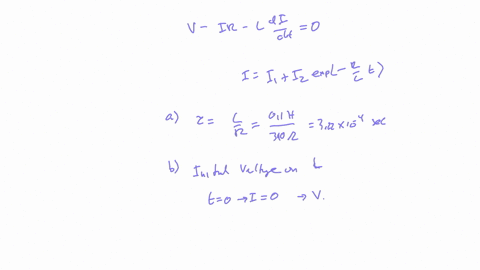 V - IR - L dI/dt = 0
I = I₁ + I₂ exp(- R/L t)
a) τ = L/R = 0.1H/310Ω = 3.22 × 10⁻⁴ sec
b) Initial Voltage on L
t=0 → I=0 → V.